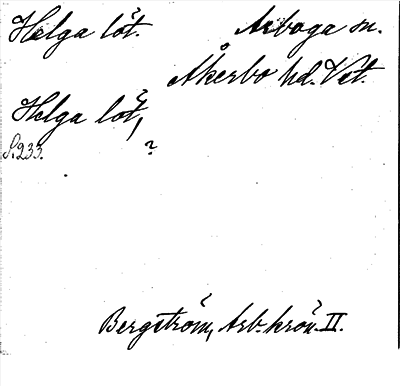 Helga löt. Arboga sn.
Åkerbo hd. Vst.
Helga löt,
S. 233. ?
Bergström, Arb. krön. II.